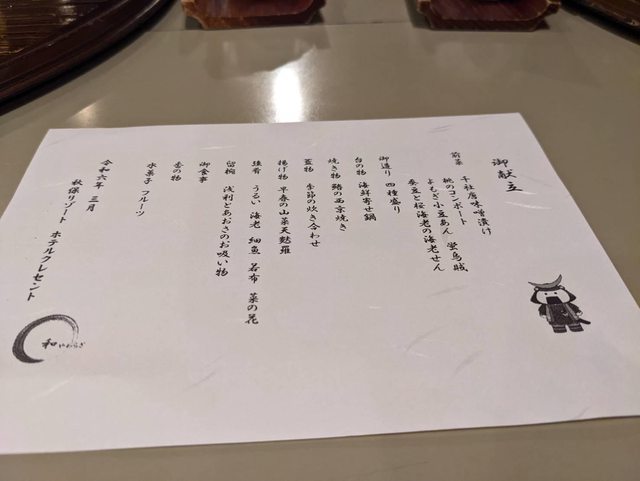 御献立
前菜 千社唐味噌漬け
桃のコンポート 蛍烏賊
よもぎ小豆あん
蚕豆と桜海老の海老せん
御造り 四種盛り
台の物 海鮮寄せ鍋
焼き物 鰆の西京焼き
蓋物 季節の炊き合わせ
揚げ物 早春の山菜天麩羅
強肴 うるい 海老 細魚 若布 菜の花
留椀 浅利とあおさのお吸い物
御食事
香の物
水菓子 フルーツ
令和六年 三月
秋保リゾート ホテルクレセント
和 やわらぎ